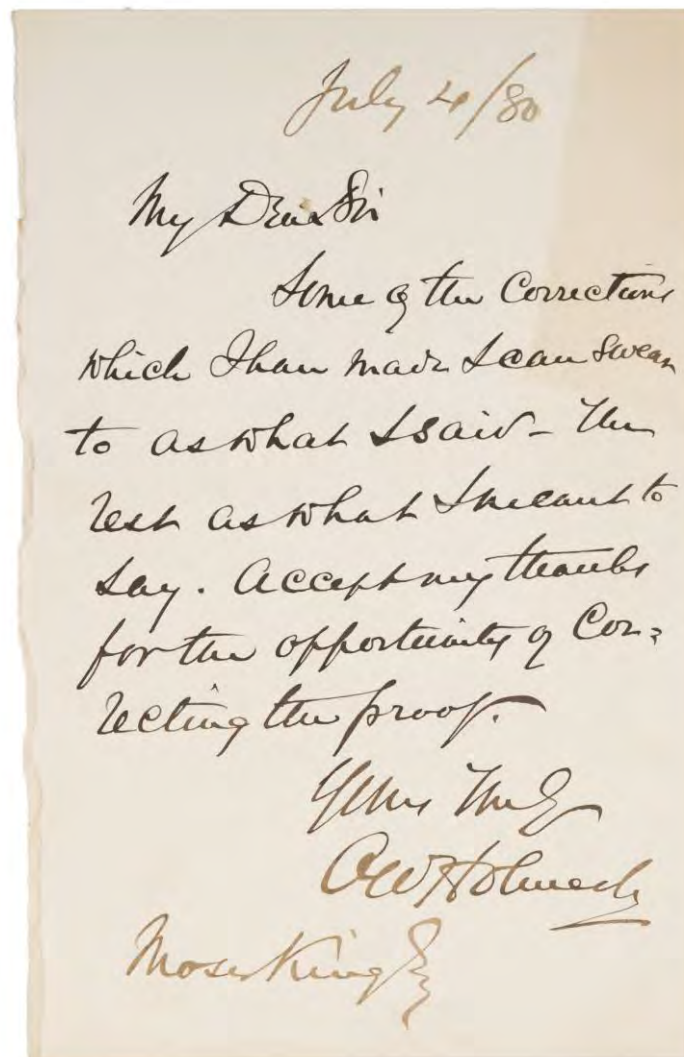 July 4/80
My Dear Sir
Some of the Corrections
which I have made I can swear
to as what I said – The
rest as what I meant to
say. Accept my thanks
for the opportunity of Cor=
recting the proof.
Yours Truly
O W Holmes Jr
Moses King Esq